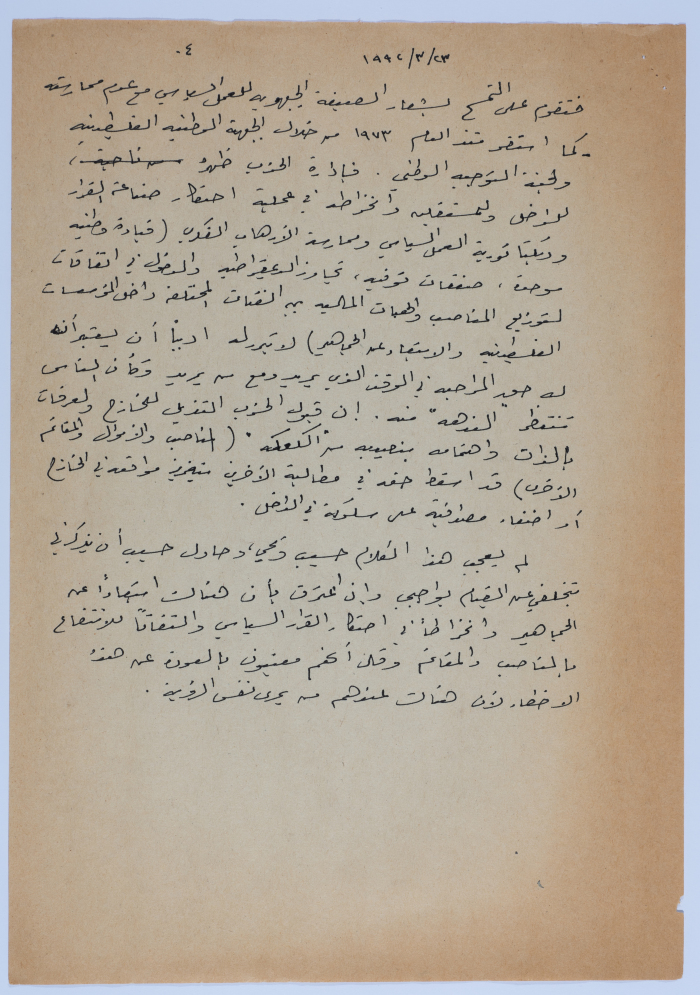 ١٩٩٢/٣/٢٣ ٤٠
فتقوم على التمسح بشعار الصيغة الجبهوية للعمل السياسي مع عدم ممارسته
كما استقر منذ العام ١٩٧٣ من خلال الجبهة الوطنية الفلسطينية
ولجنة التوجيه الوطني. فإدارة الحزب ظهره من ناحية،
للداخل وللمستقلين وانخراطه في عملية احتكار صناعة القرار
ودكتاتورية العمل السياسي وممارسة الارهاب الفكري (قيادة وطنية
موحدة، صفقات فوقية، تجاوز الديمقراطية والدخول في اتفاقات
لتوزيع المناصب والهبات المالية بين الفئات المختلفة داخل المؤسسات
الفلسطينية والابتعاد عن الجماهير) لا تبرر له ادبياً أن يعتبر أنه
له حق المراجعة في الوقت الذي يريد ومع من يريد وكأن الناس
تنتظر "الندهة" منه. إن قبول الحزب التذيل للخارج ولعرفات
بالذات واهتمامه بنصيبه من "الكعكة" (المناصب والأموال والمغانم
الأخرى) قد اسقط حقه في مطالبة الآخرين بتعزيز مواقعه في الخارج
أو اضفاء مصداقية على سلوكه في الداخل.
لم يعجب هذا الكلام حسيب ويحيى، وحاول حسيب أن يذكرني
بتخلفي عن القيام بواجبي وإن اعترف بأن هناك ابتعاداً عن
الجماهير وانخراطاً في احتكار القرار السياسي والتفاتاً للانتفاع
بالمناصب والمغانم وقال أنهم معنيون بالعودة عن هذه
الاخطاء لأن هناك عندهم من يرى نفس الرؤية.